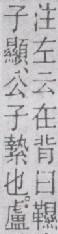 注左云在背曰韅
子顯公子縶也盧